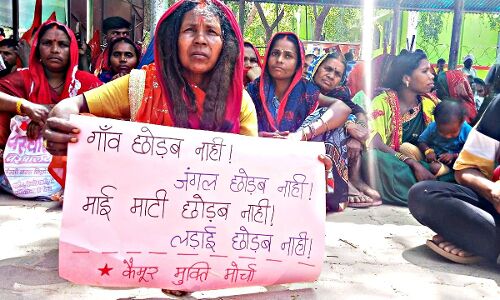 गाँव छोड़ब नाही!
जंगल छोड़ब नाहीं!
माई माटी छोड़ब नाही!
लड़ाई छोड़ब नाहीं!
★ कैमूर मुक्ति मोर्चा